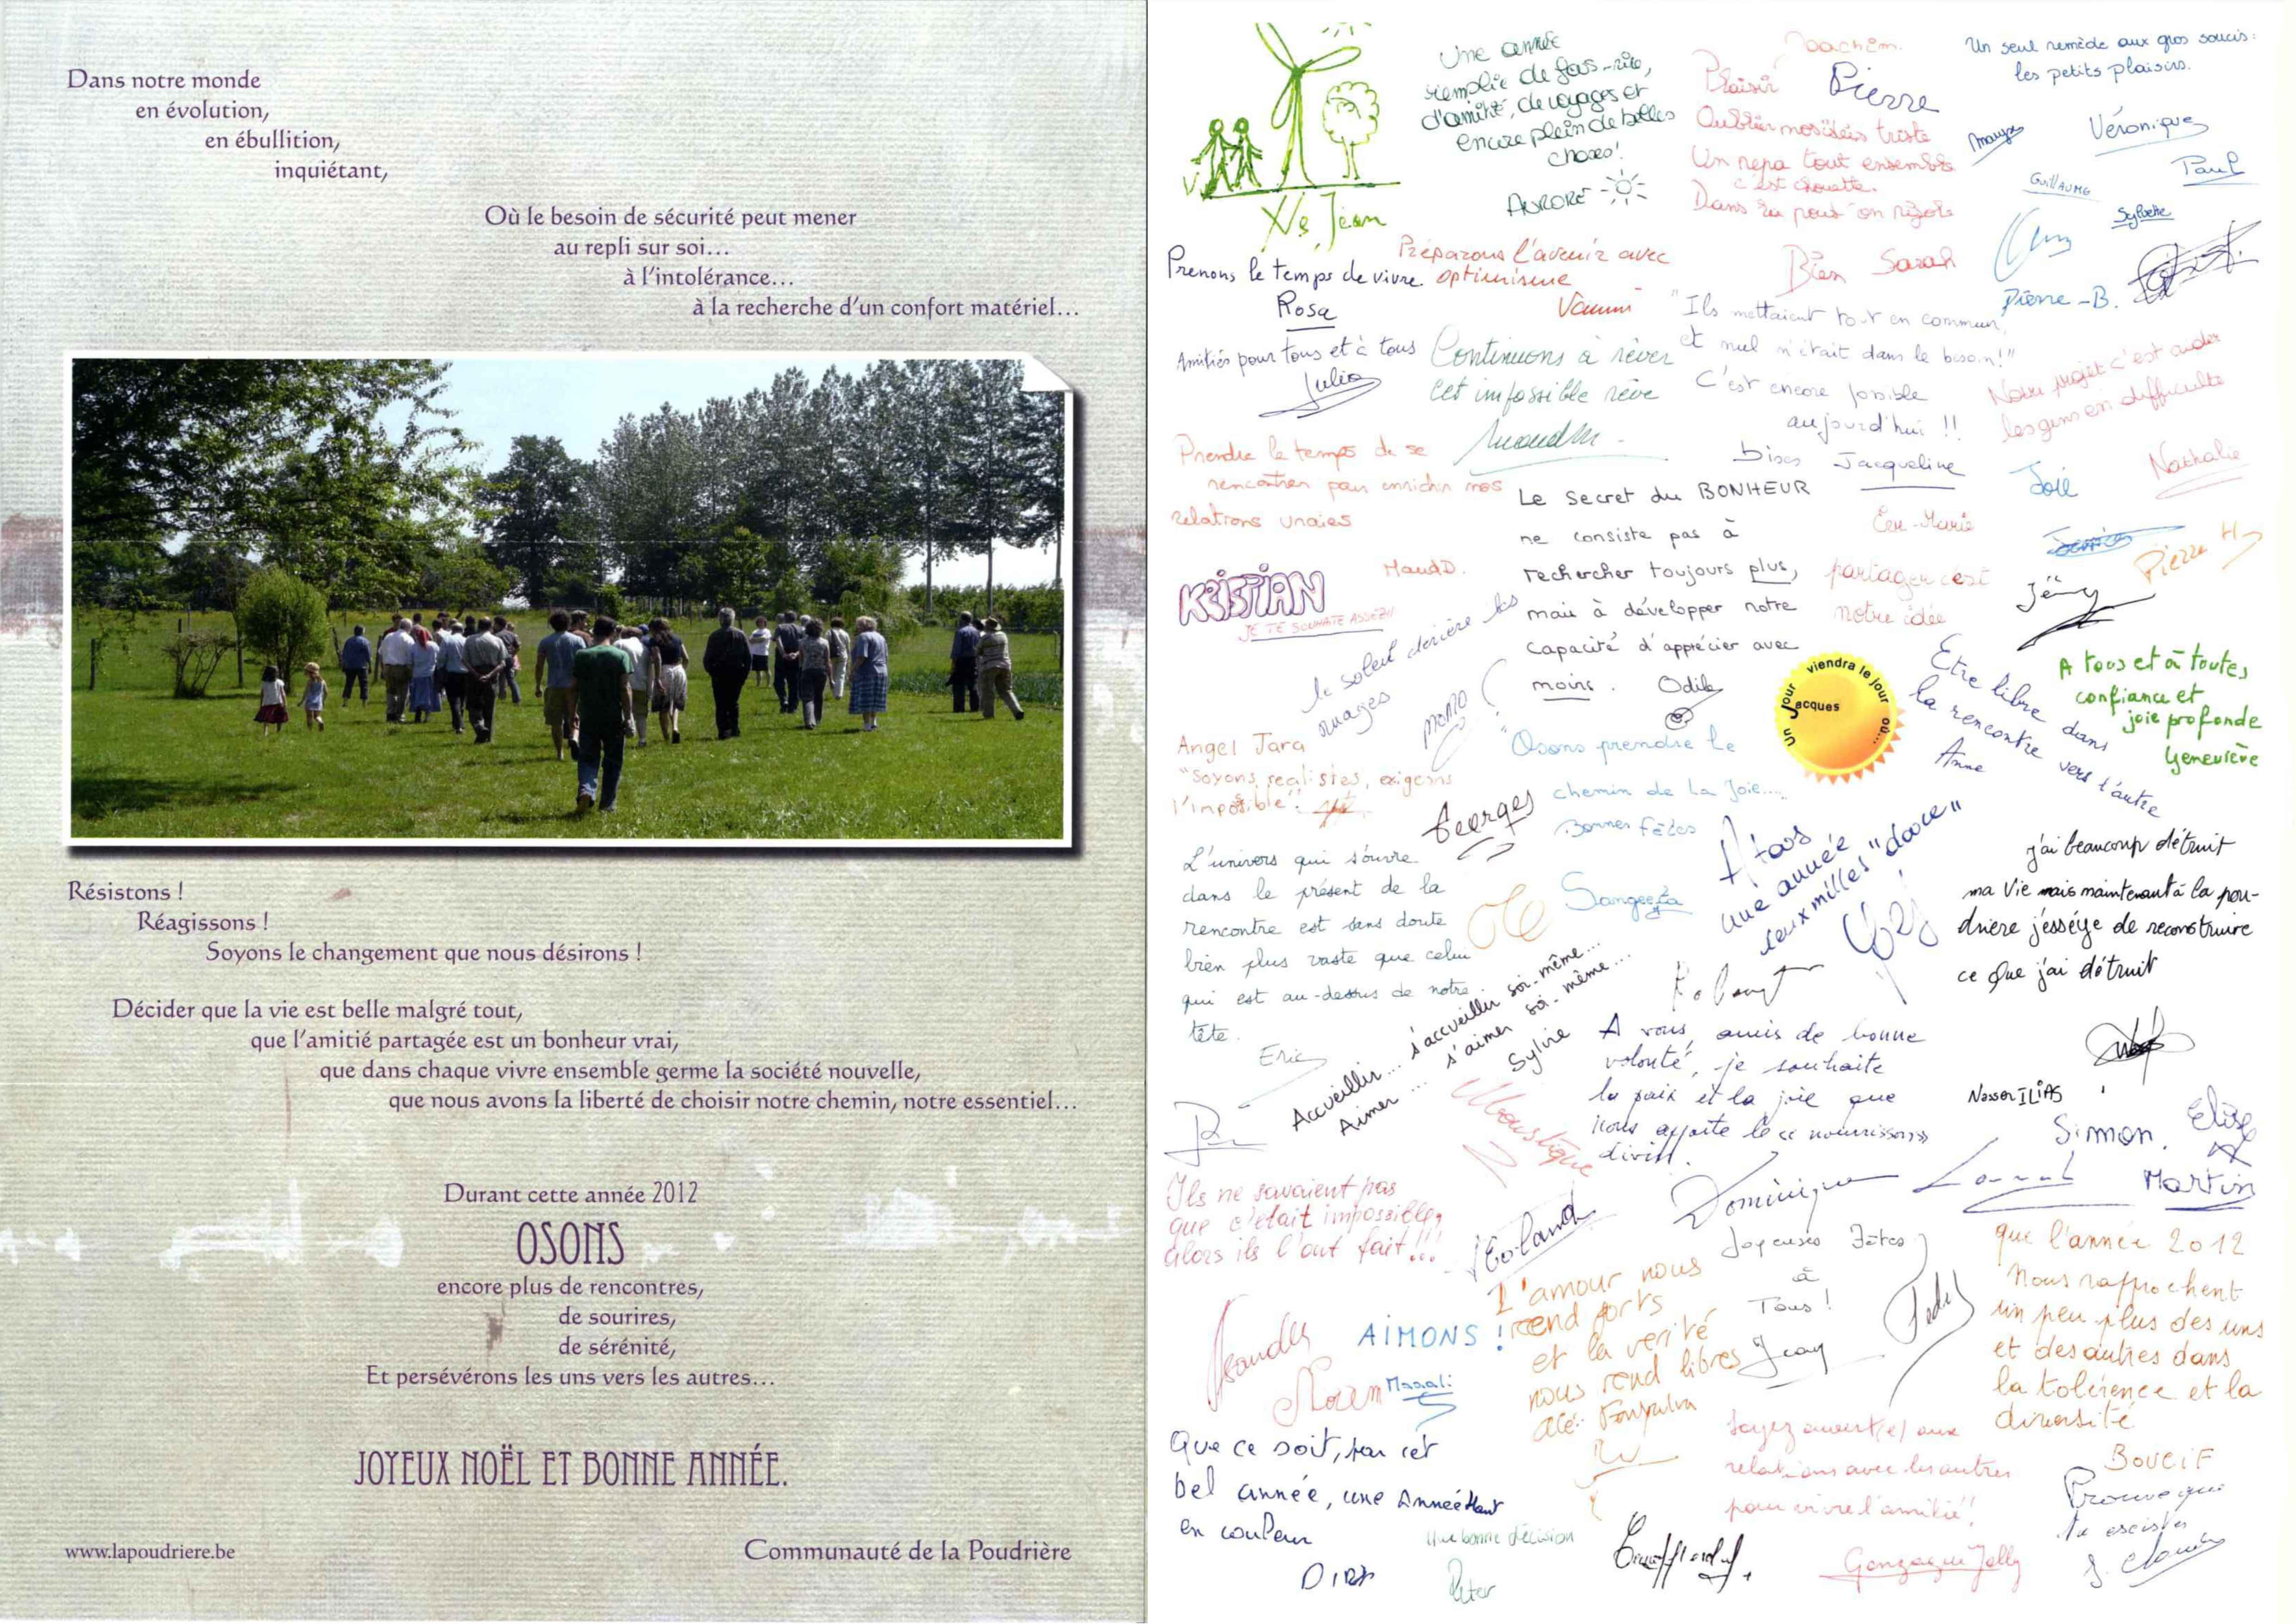 Dans notre monde
en évolution,
en ébullition,
inquiétant,
Où le besoin de sécurité peut mener
au repli sur soi...
à l'intolérance...
à la recherche d'un confort matériel...
Résistons !
Réagissons !
Soyons le changement que nous désirons !
Décider que la vie est belle malgré tout,
que l'amitié partagée est un bonheur vrai,
que dans chaque vivre ensemble germe la société nouvelle,
que nous avons la liberté de choisir notre chemin, notre essentiel...
Durant cette année 2012
OSONS
encore plus de rencontres,
de sourires,
de sérénité,
Et persévérons les uns vers les autres...
JOYEUX NOËL ET BONNE ANNÉE.
www.lapoudriere.be
Communauté de la Poudrière
Une année
remplie de fous-rire,
d'amitié, de voyages et
encore plein de belles
choses!
AURORE
Joachim.
Plaisir
Pierre
Oublier nos idées triste
Un repa tout ensemble
c'est chouette.
on rigole
Bien Sarah
Un seul remède aux gros soucis :
les petits plaisirs.
Véronique
Paul
GUILLAUME
Sylvette
Pierre-B.
Jean
Prenons le temps de vivre
Rosa
Préparons l'avenir avec
optimisme
Vanni
Amitiés pour tous et à tous
Julia
Continuons à rêver
cet impossible rêve
"Ils mettaient tout en commun,
et nul n'était dans le besoin!"
C'est encore possible
aujourd'hui !!
bises Jacqueline
Notre projet c'est aider
les gens en difficulté
Nathalie
Joie
Prendre le temps de se
rencontrer pour enrichir nos
relations vraies
Maud D.
KRISTIAN
JE TE SOUHAITE ASSEZ!!
Le secret du BONHEUR
ne consiste pas à
rechercher toujours plus,
mais à développer notre
capacité d'apprécier avec
moins. Odile
Eve-Marie
partager c'est
notre idée
Jérémy
Pierre H
le soleil derrière les
nuages
MOMO
Un Jour viendra le jour où...
Jacques
Etre libre dans
la rencontre vers l'autre
Anne
A tous et à toutes
confiance et
joie profonde
Geneviève
Angel Jara
"Soyons réalistes, exigeons
l'impossible"!
Georges
"Osons prendre le
chemin de la Joie....
Bonnes fêtes
Sangeeta
A tous
une année
deux milles "douce"
j'ai beaucoup détruit
ma vie mais maintenant à la pou-
driere j'esséye de reconstruire
ce que j'ai détruit
Nasser ILIAS
L'univers qui s'ouvre
dans le présent de la
rencontre est sans doute
bien plus vaste que celui
qui est au-dessus de notre
tête.
Eric
Accueillir... s'accueillir soi-même...
Aimer... s'aimer soi-même...
Sylvie
Moustique
Robert
A vous, amis de bonne
volonté, je souhaite
la paix et la joie que
nous apporte le « nourrisson »
divin.
Dominique
Simon.
Elise
Martin
Ils ne savaient pas
que c'était impossible,
alors ils l'ont fait!!!
Roland
AIMONS !
Magali
L'amour nous
rend forts
et la verité
nous rend libres
Joyeuses Fêtes
à
Tous !
Jean
que l'année 2012
nous rapprochent
un peu plus des uns
et des autres dans
la tolérence et la
diversité
BOUCIF
Que ce soit, pour cet
bel année, une Année Haut
en couleur
DIRK
Une bonne décision
Peter
Soyez ouvert(e) aux
relations avec les autres
pour vivre l'amitié!!
Gonzague Jolly
Prouve que
tu escistes